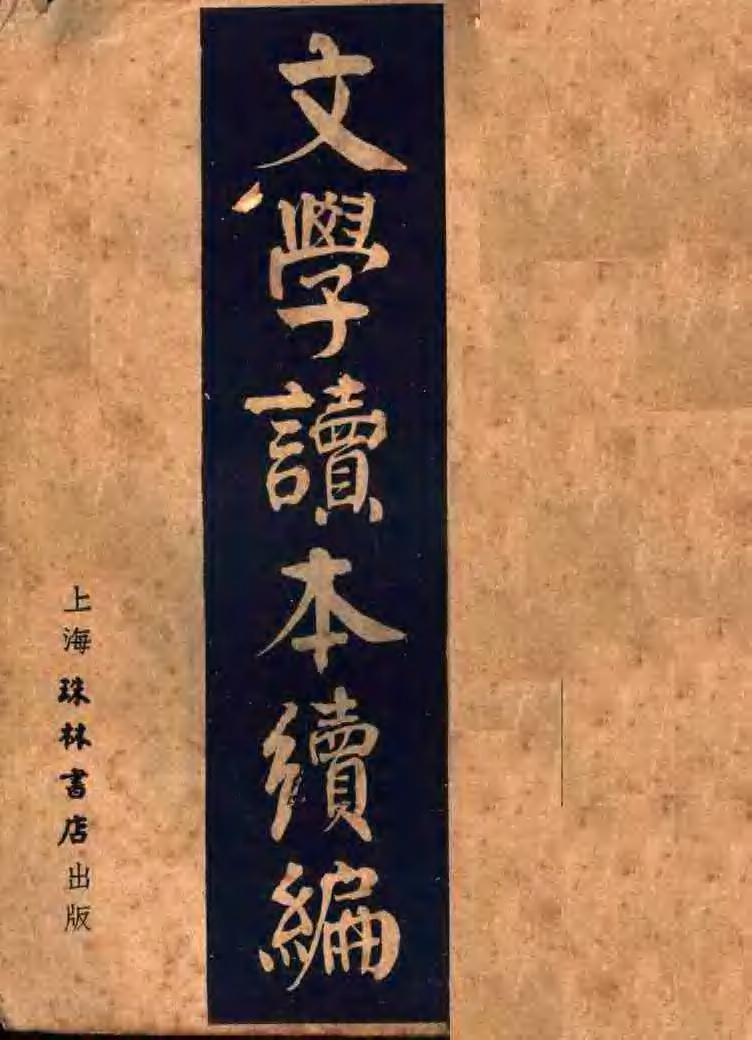 文學讀本續編
上海珠林書店出版